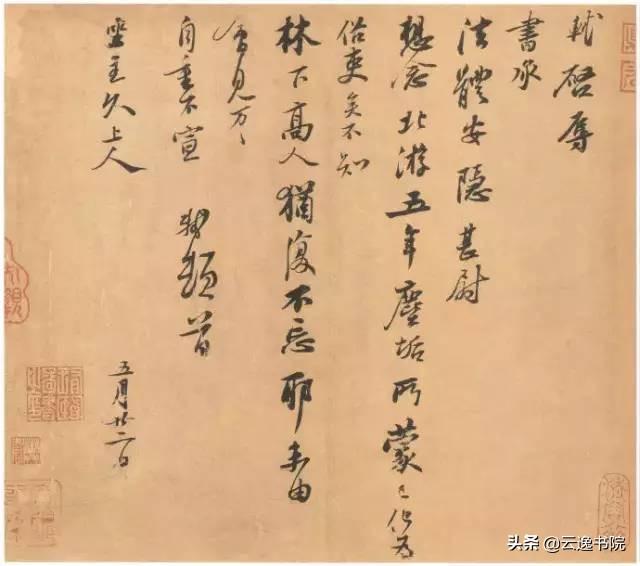 軾啓辱
書承
法體安隱甚尉
想念北游五年塵垢所蒙已化為
俗吏矣不知
林下高人猶復不忘耶未由
會見萬〻
自重不宣 軾頓首
坐主久上人
五月廿二日
头条 @云逸书院